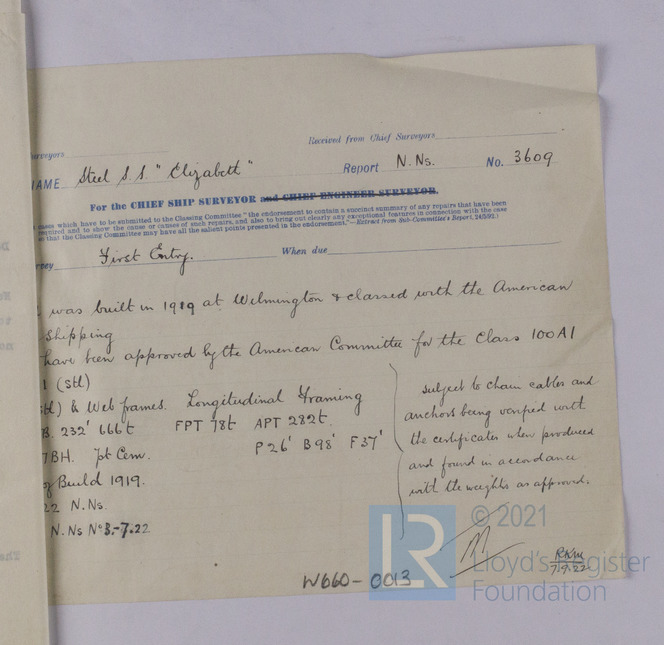 Surveyors Received from Chief Surveyors
NAME Steel S.S. "Elizabeth" Report N.Ns. No. 3609
For the CHIEF SHIP SURVEYOR and CHIEF ENGINEER SURVEYOR.
cases which have to be submitted to the Classing Committee "the endorsement to contain a succinct summary of any repairs that have been
required and to show the cause or causes of such repairs, and also to bring out clearly any exceptional features in connection with the case
so that the Classing Committee may have all the salient points presented in the endorsement."—Extract from Sub-Committee's Report, 24/5/92.)
vey First Entry. When due
was built in 1919 at Wilmington & classed with the American
Shipping
have been approved by the American Committee for the Class 100A1
1 (stl)
tl) & Web frames. Longitudinal Framing
B. 232' 666t FPT 78t APT 282t
7BH. pt Cem. P26' B98' F37'
of Build 1919.
22 N.Ns.
N.Ns No 3.-7.22
subject to chain cables and
anchors being verified with
the certificates when produced
and found in accordance
with the weights as approved.
RKM
7.9.22
W660-0013
LR
© 2021
Lloyd's Register
Foundation